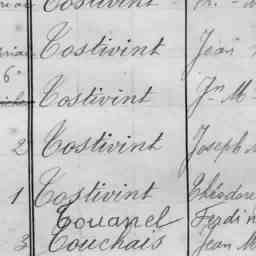 Tostivint
Tostivint Jean
6
Tostivint Jn M
2 Tostivint Joseph
1 Tostivint Théodore
Touanel Ferdin
3 Touchais Jean M